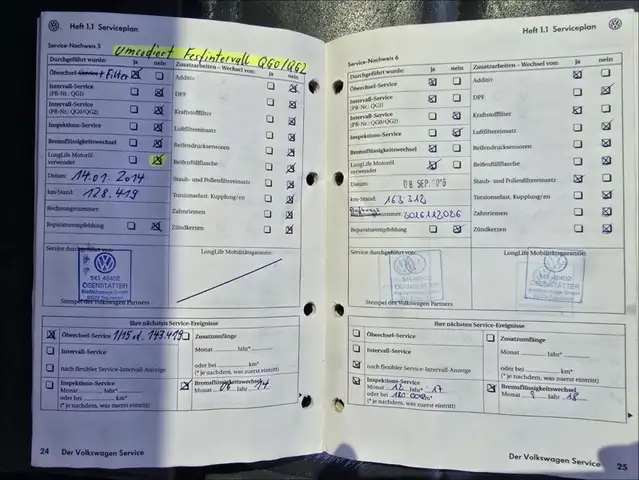 Heft 1.1 Serviceplan
Service-Nachweis 5
Umcodiert Festintervall QG0/QG2
Durchgeführt wurde: ja nein
Ölwechsel-Service Filter
Intervall-Service
(PR-Nr.: QG1)
Intervall-Service
(PR-Nr.: QG0/QG2)
Inspektions-Service
Bremsflüssigkeitswechsel
LongLife Motoröl
verwendet
Datum: 14.01.2014
km-Stand: 128.419
Rechnungsnummer:
Reparaturempfehlung
Zusatzarbeiten – Wechsel von: ja nein
Additiv
DPF
Kraftstofffilter
Luftfiltereinsatz
Reifendrucksensoren
Reifenfüllflasche
Staub- und Pollenfiltereinsatz
Torsionselast. Kupplung/en
Zahnriemen
Zündkerzen
Service durchgeführt von:
LongLife Mobilitätsgarantie:
OSENSTATTER
Stempel des Volkswagen Partners
Ihre nächsten Service-Ereignisse
Ölwechsel-Service 1/15 o. 143.419
Intervall-Service
nach flexibler Service-Intervall-Anzeige
Inspektions-Service
Monat Jahr*
oder bei km*
(* je nachdem, was zuerst eintritt)
Zusatzumfänge
Monat Jahr*
oder bei km*
(* je nachdem, was zuerst eintritt)
Bremsflüssigkeitswechsel
Monat 06 Jahr 14
24 Der Volkswagen Service
Heft 1.1 Serviceplan
Service-Nachweis 6
Durchgeführt wurde: ja nein
Ölwechsel-Service
Intervall-Service
(PR-Nr.: QG1)
Intervall-Service
(PR-Nr.: QG0/QG2)
Inspektions-Service
Bremsflüssigkeitswechsel
LongLife Motoröl
verwendet
Datum: 08. SEP.
km-Stand: 163 212
Reparaturempfehlung
Zusatzarbeiten – Wechsel von: ja nein
Additiv
DPF
Kraftstofffilter
Luftfiltereinsatz
Reifendrucksensoren
Reifenfüllflasche
Staub- und Pollenfiltereinsatz
Torsionselast. Kupplung/en
Zahnriemen
Zündkerzen
Service durchgeführt von:
LongLife Mobilitätsgarantie:
OSENSTATTER
OSENSTATTER
Stempel des Volkswagen Partners
Ihre nächsten Service-Ereignisse
Ölwechsel-Service
Intervall-Service
nach flexibler Service-Intervall-Anzeige
Inspektions-Service
Monat 12 Jahr* 17
oder bei 180 000 km*
(* je nachdem, was zuerst eintritt)
Zusatzumfänge
Monat Jahr*
oder bei km*
(* je nachdem, was zuerst eintritt)
Bremsflüssigkeitswechsel
Monat 9 Jahr 18
Der Volkswagen Service 25